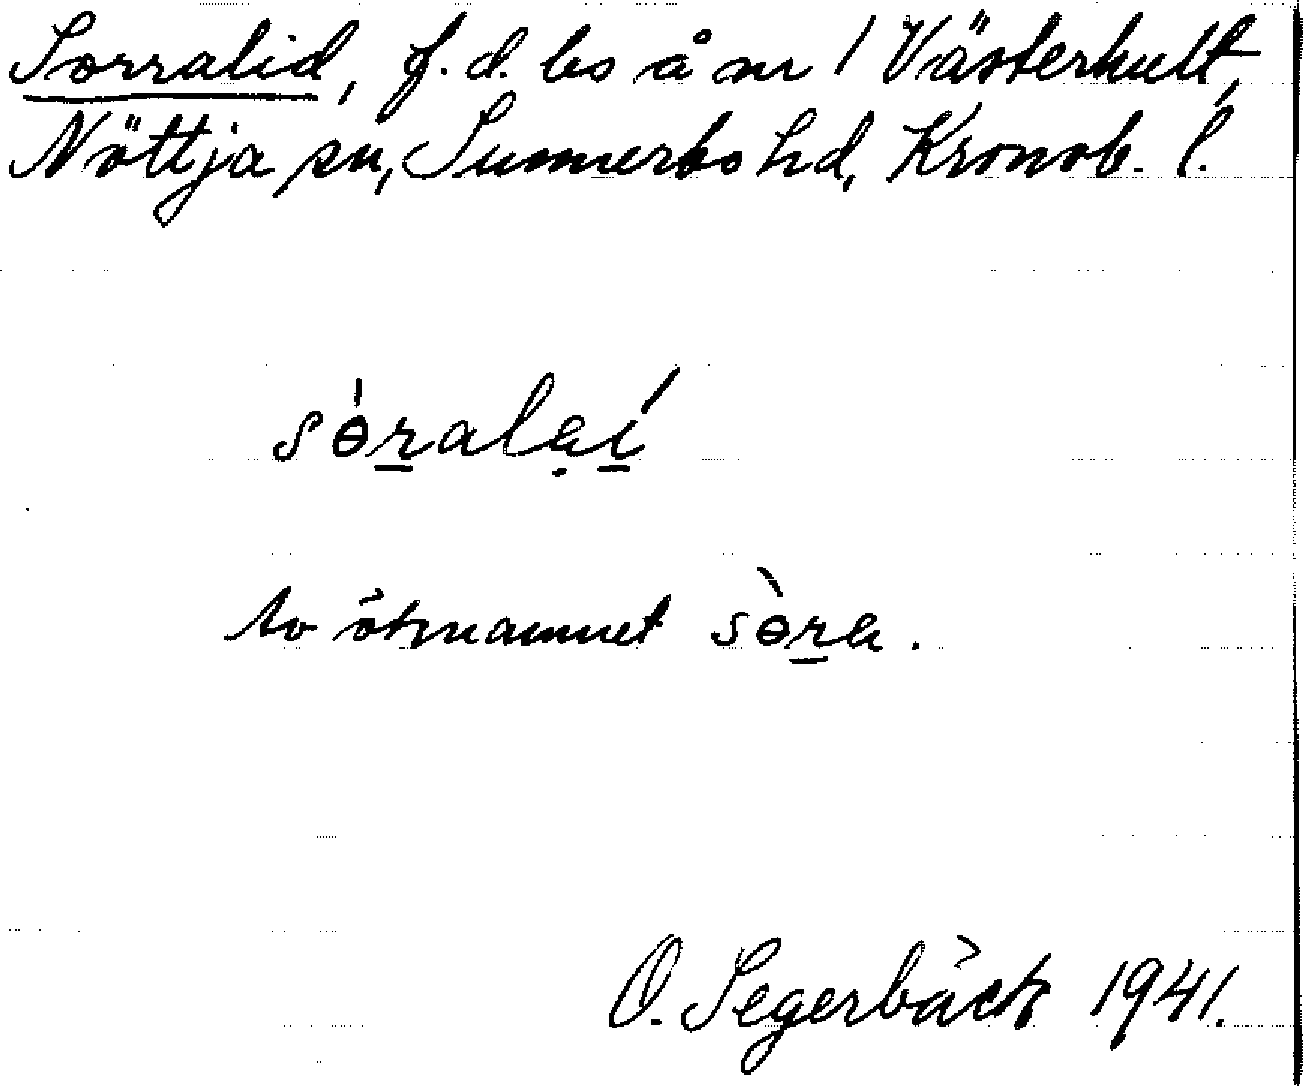 Sorralid, f. d. bs å nr 1 Västerhult,
Nöttja sn, Sunnerbo hd, Kronob. l.
sɵ̀ṟalạí̱
Av öknamnet sɵ̀ṟa.
O. Segerbäck 1941.